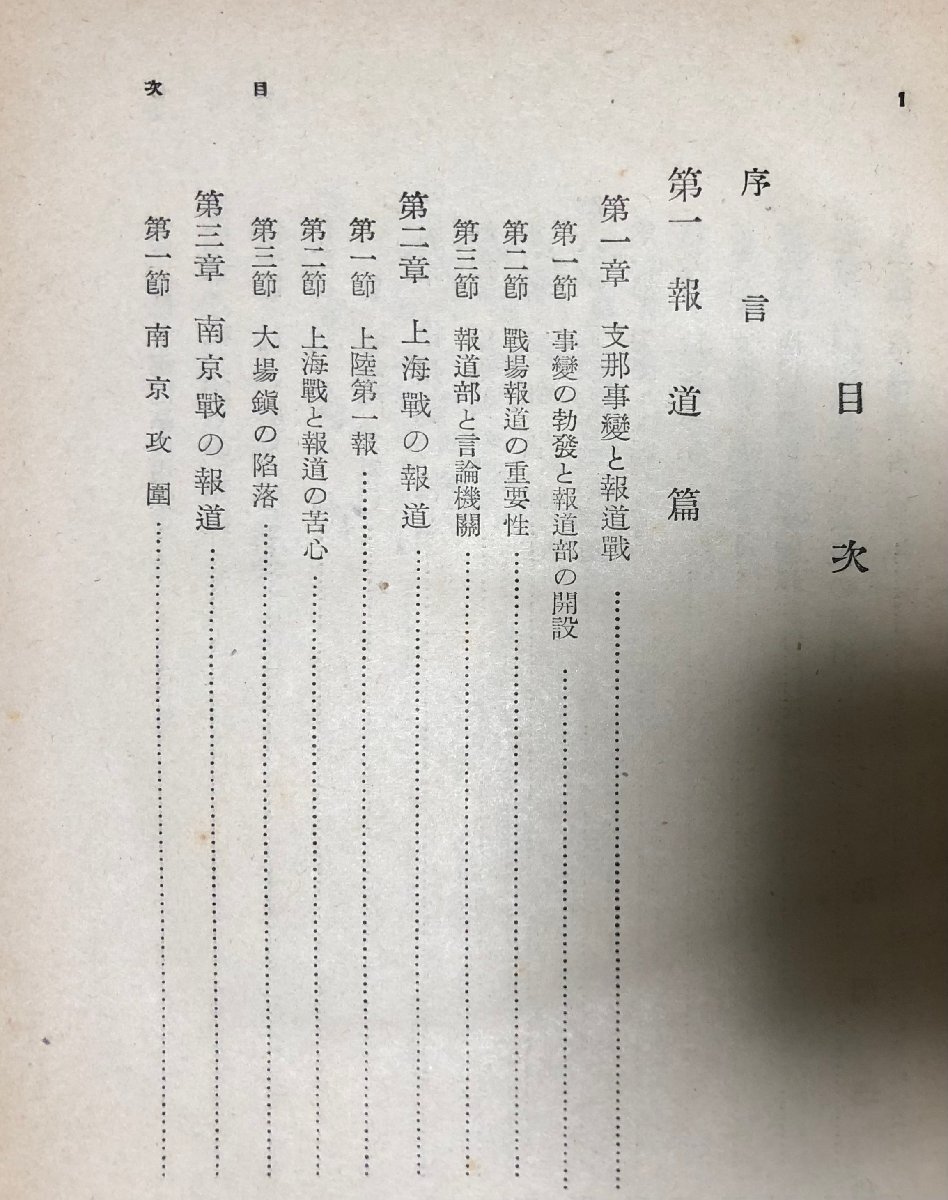 目次
1
目次
序言
第一 報道篇
第一章 支那事變と報道戰
第一節 事變の勃發と報道部の開設
第二節 戰場報道の重要性
第三節 報道部と言論機關
第二章 上海戰の報道
第一節 上陸第一報
第二節 上海戰と報道の苦心
第三節 大場鎭の陷落
第三章 南京戰の報道
第一節 南京攻圍